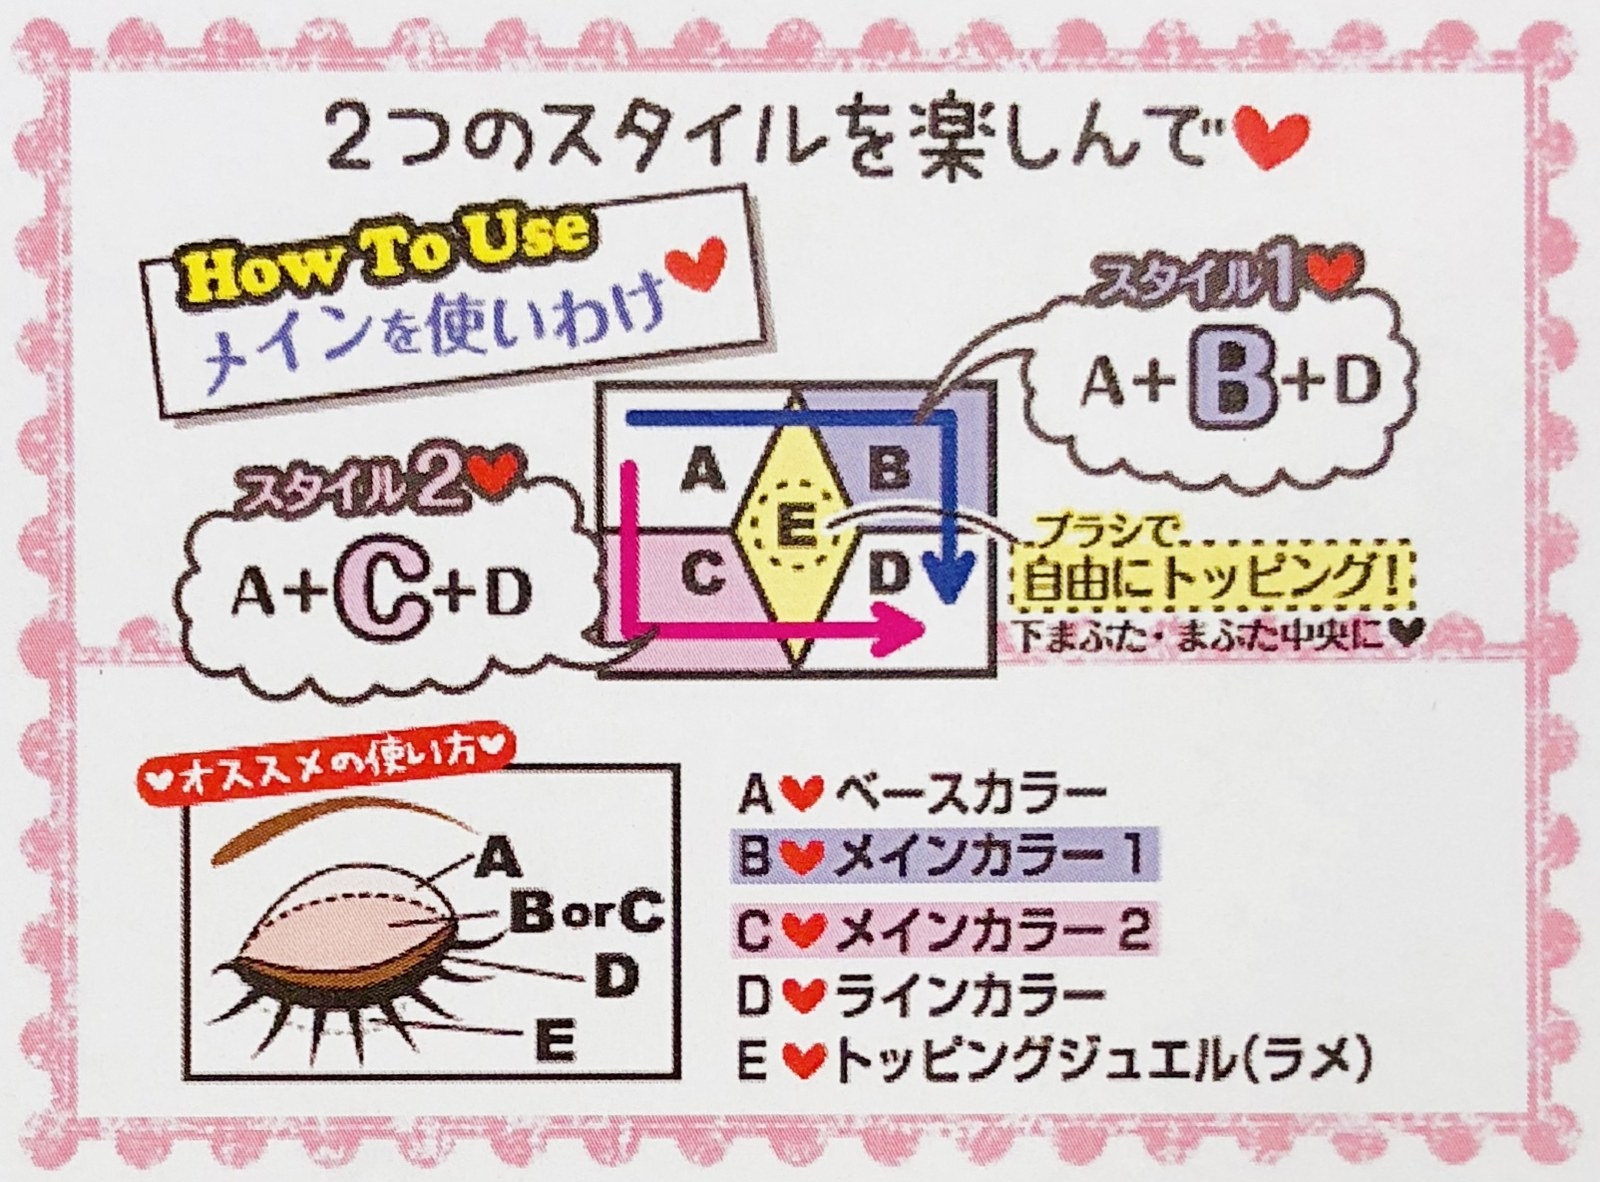 2つのスタイルを楽しんで♥
How To Use
メインを使いわけ♥
スタイル1♥
A+B+D
スタイル2♥
A+C+D
A
B
C
D
E
ブラシで
自由にトッピング!
下まぶた・まぶた中央に♥
♥オススメの使い方♥
A
BorC
D
E
A♥ベースカラー
B♥メインカラー1
C♥メインカラー2
D♥ラインカラー
E♥トッピングジュエル(ラメ)